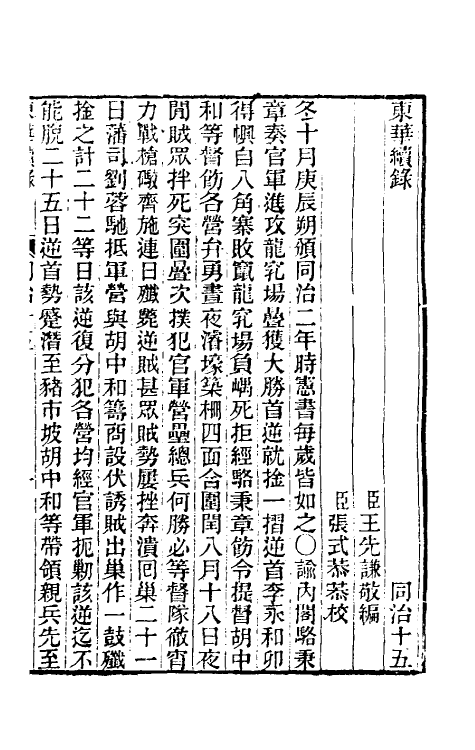 東華續錄
同治十五
臣王先謙敬編
臣張式恭恭校
冬十月庚辰朔頒同治二年時憲書每歲皆如之〇諭內閣駱秉
章奏官軍進攻龍究場疊獲大勝首逆就擒一摺逆首李永和卯
得興自八角寨敗竄龍究場負嵎死拒經駱秉章飭令提督胡中
和等督飭各營弁勇晝夜濬壕築柵四面合圍閏八月十八日夜
間賊眾拌死突圍疊次撲犯官軍營壘總兵何勝必等督隊徹宵
力戰槍礮齊施連日殲斃逆賊甚眾賊勢屢挫奔潰回巢二十一
日藩司劉蓉馳抵軍營與胡中和籌商設伏誘賊出巢作一鼓殲
捦之計二十二等日該逆復分犯各營均經官軍扼勦該逆迄不
能脫二十五日逆首勢蹙潛至豬市坡胡中和等帶領親兵先至